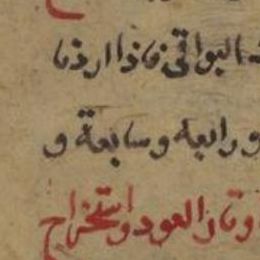 البواقي فاذا اردنا
ورابعة وسابعة و
وتار العود واستخراج